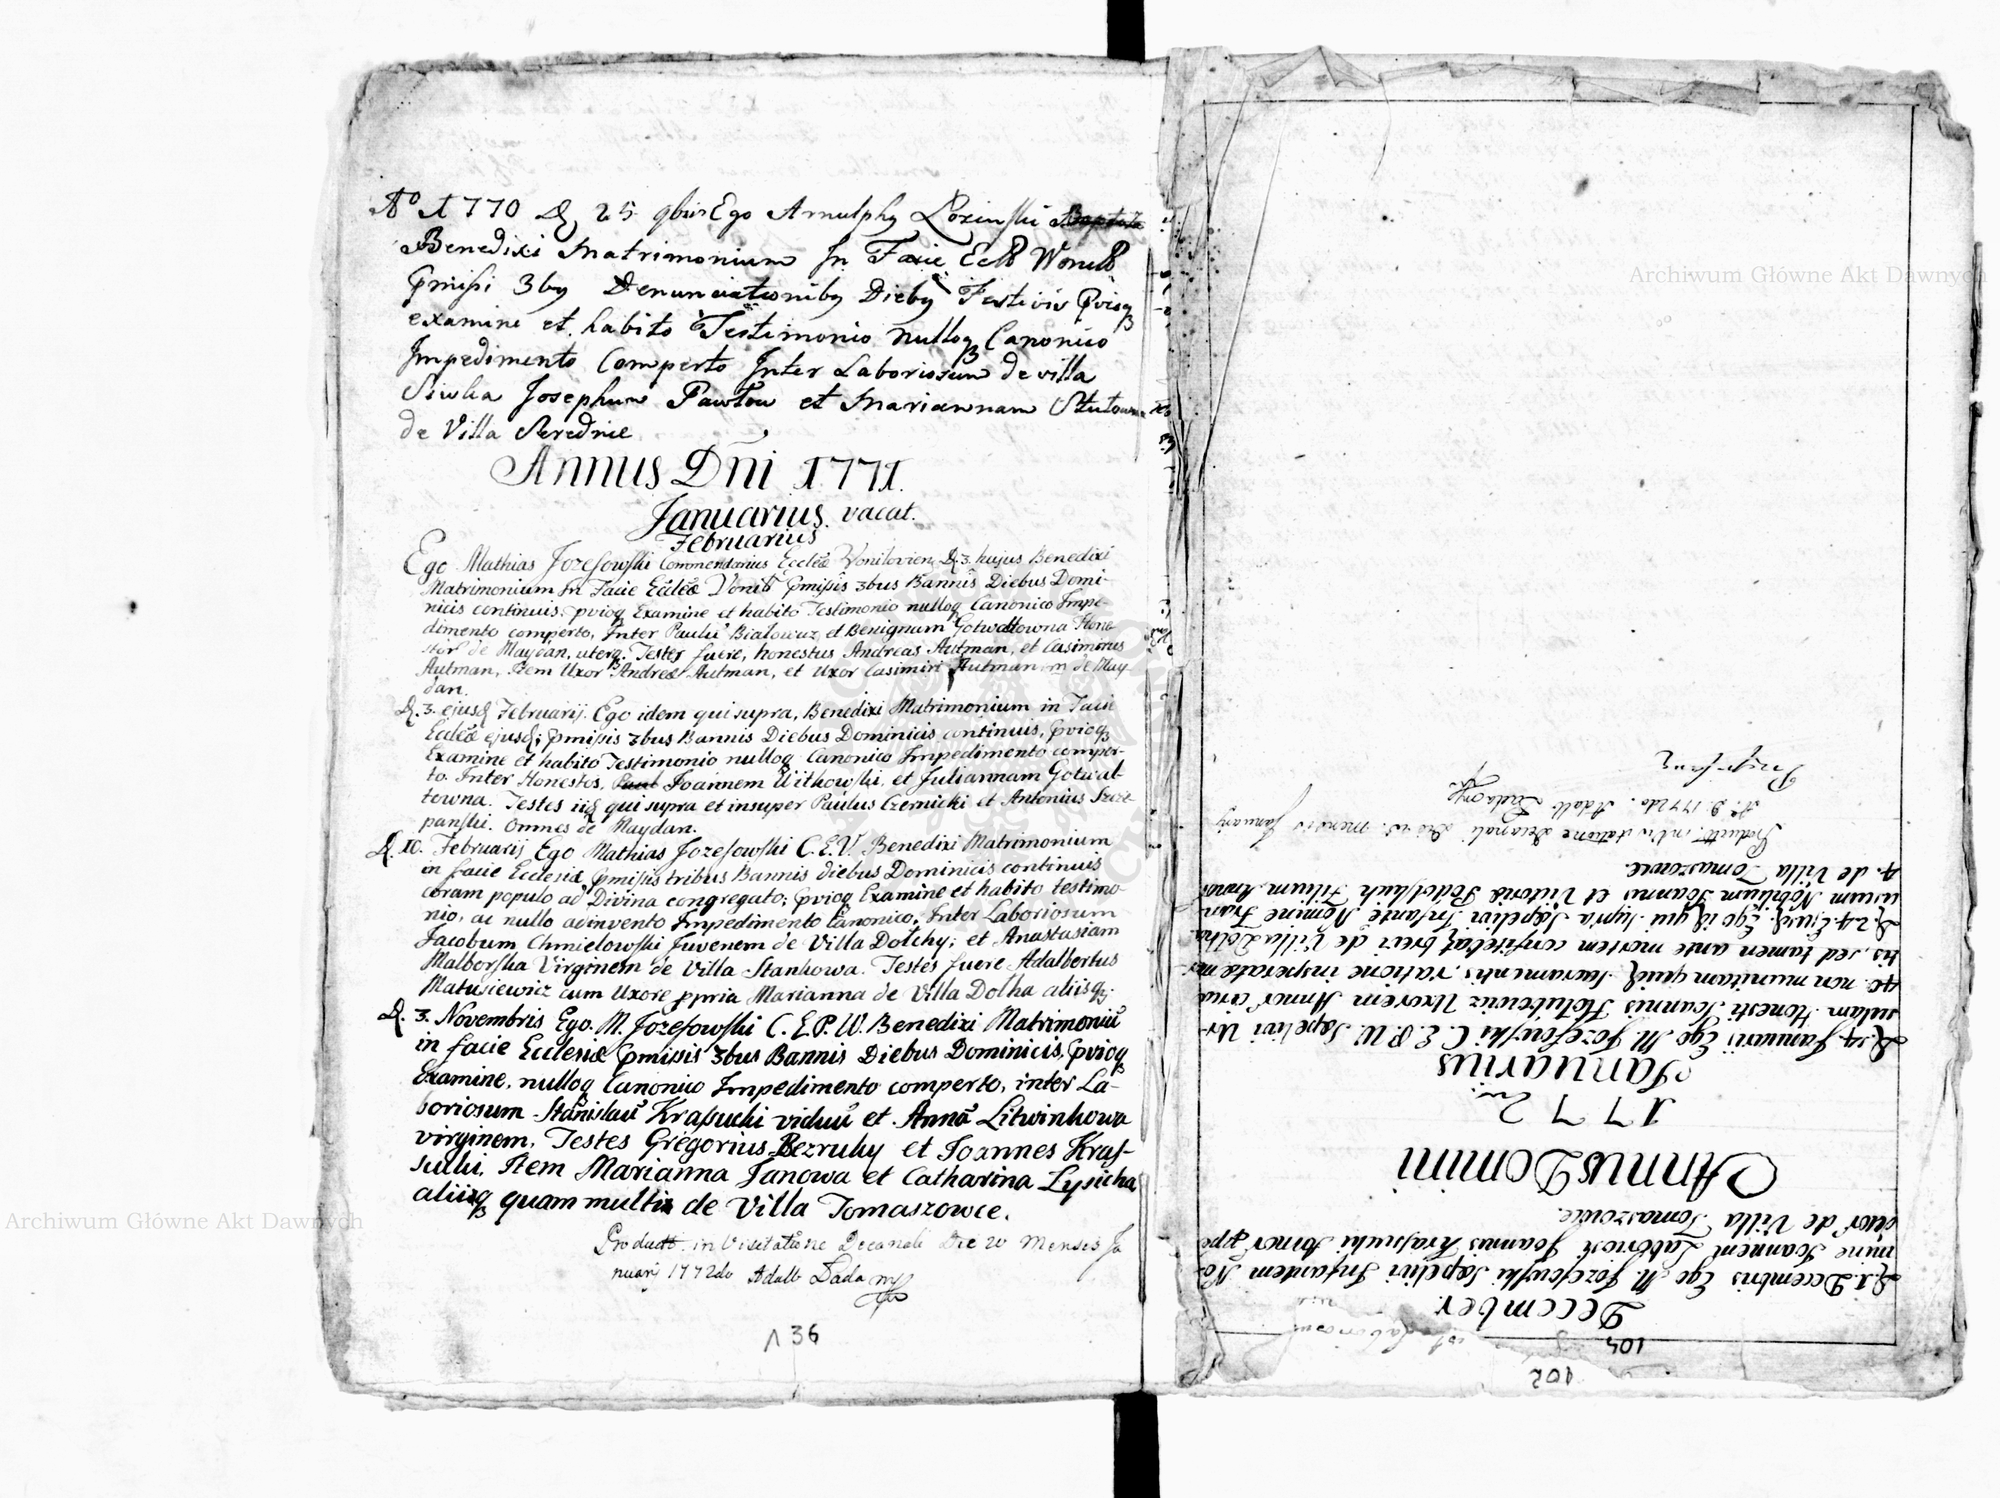 Aº 1770 D. 25 9bris Ego Arnulphq Lozinski
Benedixi Matrimonium In Facie Ecllæ
pmissi 3bq Denunciationibq Diebq Festivis pvioq
examine et habito Testimonio nulloq Canonico
Impedimento Comperto Inter Laboriosum de villa
Siwka Josephum Pawłow et Mariannam
de Villa Serednie
Annus Dni 1771.
Januarius. vacat.
Februarius
Ego Mathias Jozefowski Commendarius Eccleæ Vonilovien. D. 3. hujus Benedixi
Matrimonium In Facie Eccleæ Vonil pmissis 3bus Bannis Diebus Domi-
nicis continuis, pvioq Examine et habito Testimonio nulloq Canonico Impe-
dimento comperto, Inter Paulū Białowąz et Benignam Gotwaltowna Hone
stos de Maydan, uterq. Testes fuere, honestus Andreas Autman, et Casimirus
Autman, Item Uxor Andreæ Autman, et Uxor Casimiri Autmanom de May
dan.
D. 3. ejusd Februarij. Ego idem qui supra, Benedixi Matrimonium in Facie
Eccleæ ejusd; pmissis 3bus Bannis Diebus Dominicis continuis, pvioq
Examine et habito Testimonio nulloq Canonico Impedimento comper-
to. Inter Honestos, Joannem Witkowski, et Juliannam Gotwal-
towna. Testes iid qui supra et insuper Paulus Czernicki et Antonius Szcze
panski. Omnes de Maydan.
D. 10. Februarij Ego Mathias Jozefowski C. E. V. Benedixi Matrimonium
in facie Ecclesiæ pmissis tribus Bannis diebus Dominicis continuis
coram populo ad Divina congregato; pvioq Examine et habito testimo-
nio, ac nullo adinvento Impedimento Canonico, Inter Laboriosum
Jacobum Chmielowski Juvenem de Villa Dołhy; et Anastasiam
Malborska Virginem de Villa Stankowa. Testes fuere Adalbertus
Matusiewicz cum Uxore ppria Marianna de Villa Dolha aliisq;
D. 3. Novembris Ego. M. Jozefowski C. E. P. W. Benedixi Matrimoniū
in facie Ecclesiæ pmissis 3bus Bannis Diebus Dominicis, pvioq
Examine, nulloq Canonico Impedimento comperto, inter La-
boriosum Stanislaū Krasucki viduū et Annā Litwinkowa
virginem, Testes Gregorius Bezruky et Joannes Kras-
sucki, Item Marianna Janowa et Catharina Lysicha
aliisq quam multis de Villa Tomaszowce.
Product. in Visitatione Decanali Die 20 Mensis Ja
nuarij 1772do Adalb Dada mp
136
102
104
December.
D. 1. Decembris Ego M. Jozefowski Sepelivi Infantem No-
mine Joannem Laboriosi Joannis Krasucki
de Villa Tomaszowce.
Annus Domini
1772
Januarius
D. 14. Januarii Ego M. Jozefowski C. E. P. W. Sepelivi Ur-
sulam Honesti Joannis Hołubowicz Uxorem Annor circa
40. non munitam quid Sacramentis, ratione insperatæ mor
tis, sed tamen ante mortem confitebat brevi de Villa Dolha.
D. 24. Ejusd. Ego id qui supra Sepelivi Infantē Nomine Fran-
ciscum Nobilium Joannis et Victoriæ Filium Annor
4. de Villa Tomaszowce.
Product. in Visitatione Decanali Die 20. mensis Januarij
Aº. D. 1772do. Adalb Dada mp
Archiwum Główne Akt Dawnych
Archiwum Główne Akt Dawnych